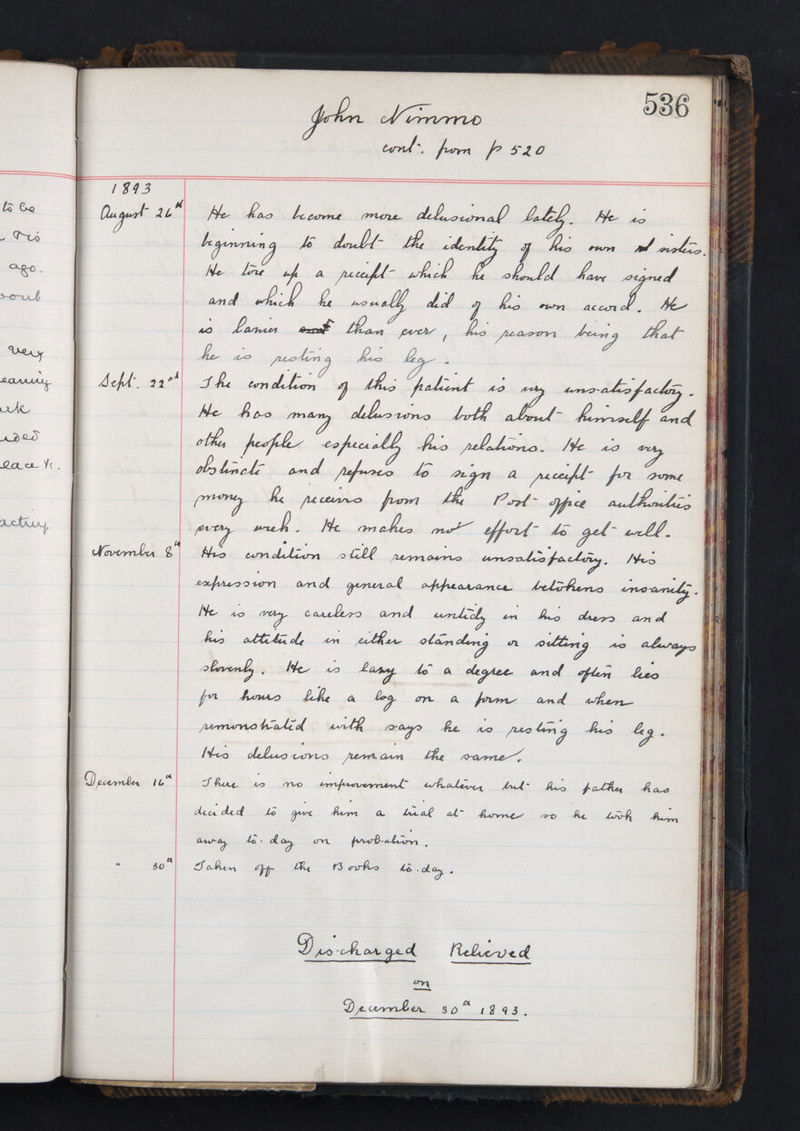 536
John Nimmo
cont. from p 520
1893
August 26th He has become more delusional lately. He is
beginning to doubt the identity of his own sisters.
He tore up a receipt which he should have signed
and which he usually did of his own accord. He
is lazier than ever, his reason being that
he is resting his leg.
Sept. 22nd The condition of this patient is very unsatisfactory.
He has many delusions both about himself and
other people especially his relations. He is very
obstinate and refuses to sign a receipt for some
money he receives from the Post office authorities
every week. He makes no effort to get well.
November 8th His condition still remains unsatisfactory. His
expression and general appearance betokens insanity.
He is very careless and untidy in his dress and
his attitude in either standing or sitting is always
slovenly. He is lazy to a degree and often lies
for hours like a log on a form and when
remonstrated with says he is resting his leg.
His delusions remain the same.
December 16th There is no improvement whatever but his father has
decided to give him a trial at home so he took him
away to-day on probation.
" 30th Taken off the Books to-day.
Discharged Relieved
on
December 30th 1893.
to be
ago.
very